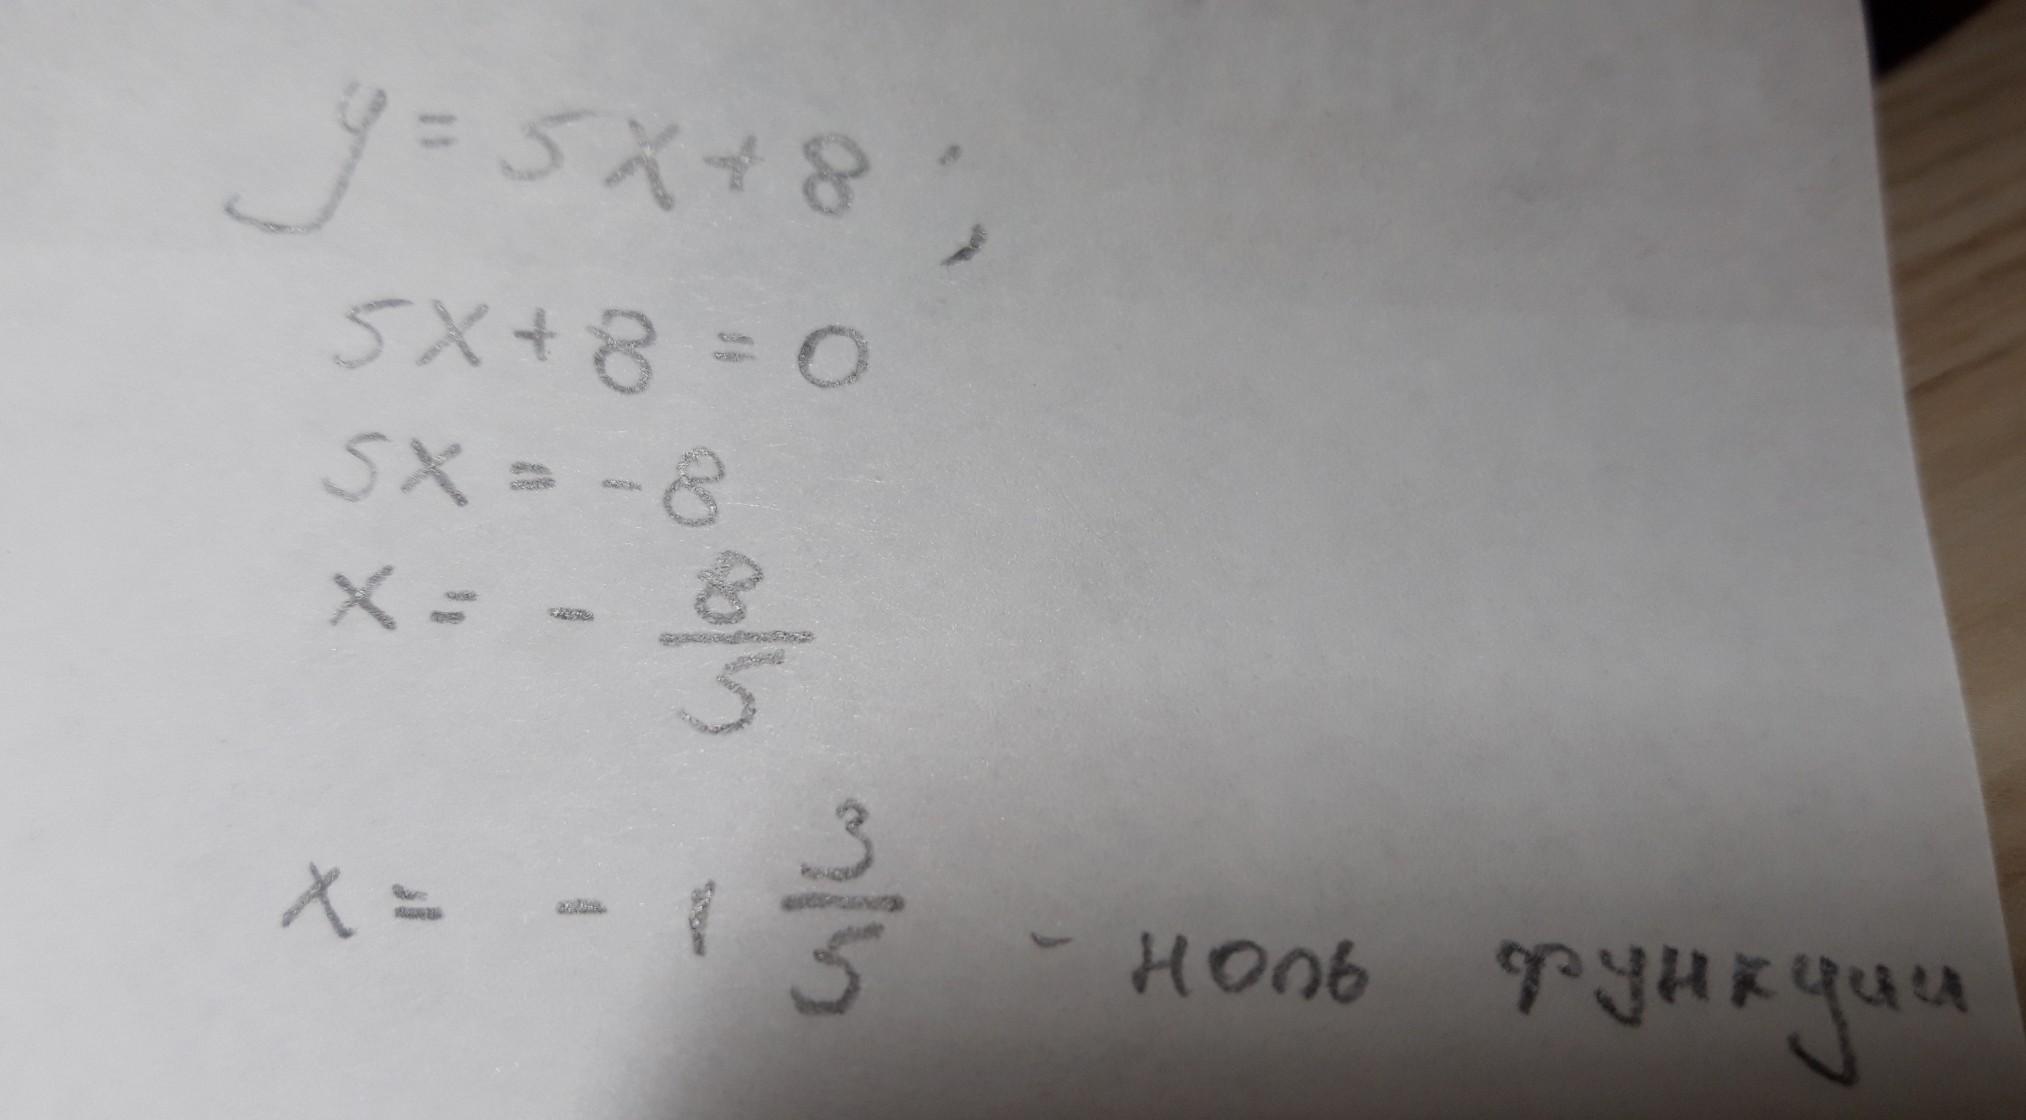 y = 5x + 8 ;
5x + 8 = 0
5x = - 8
x = - 8/5
x = - 1 3/5 - ноль функции